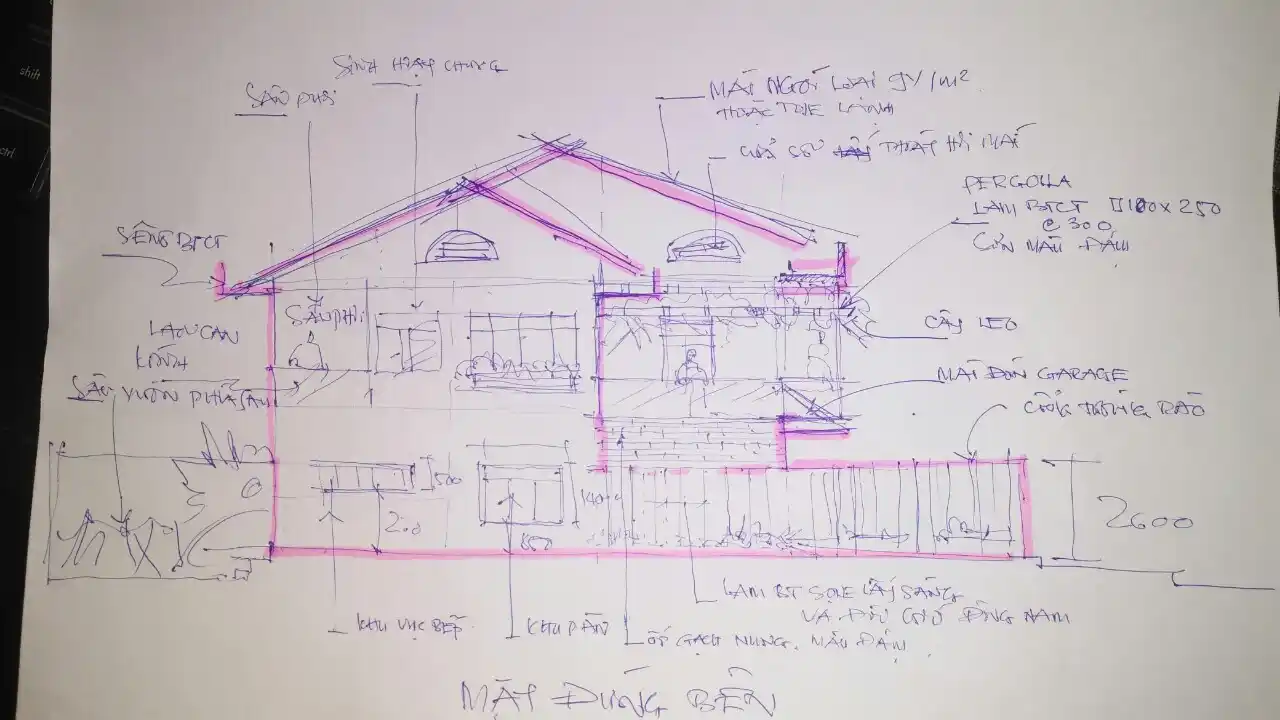 shift
ctrl
SINH HOẠT CHUNG
SÂN PHƠI
MÁI NGÓI LOẠI 9V/m²
HOẶC TOLE LẠNH
CỬA SỔ THOÁT HƠI MÁI
PERGOLLA
LAM BTCT □100x250
@300
SƠN MÀU ĐẬM
SÊNÔ BTCT
LAN CAN
KÍNH
SÂN PHƠI
CÂY LEO
SÂN VƯỜN PHÍA SAU
MÁI ĐÓN GARAGE
CỔNG TƯỜNG RÀO
500
1400
200
850
2600
LAM BT SỌC LẤY SÁNG
VÀ ĐÓN GIÓ ĐÔNG NAM
KHU VỰC BẾP
KHU ĂN
ỐP GẠCH NUNG, MÀU ĐẬM
MẶT ĐỨNG BÊN